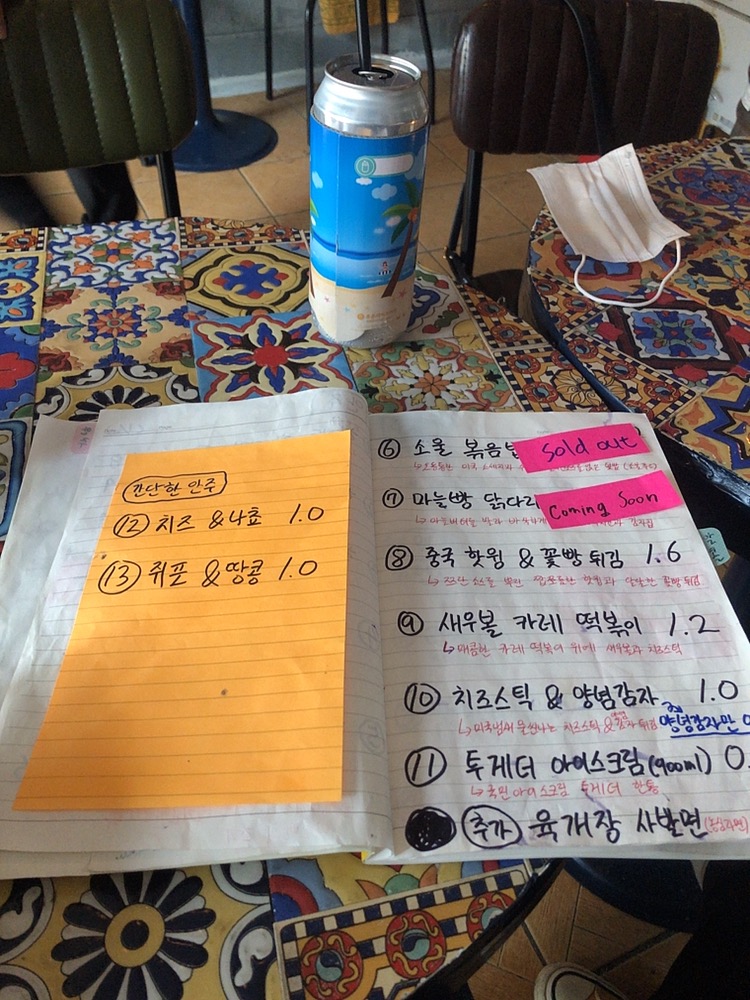 간단한 안주
⑫ 치즈 & 나쵸 1.0
⑬ 쥐포 & 땅콩 1.0
⑥ 소울 볶음밥
Sold out
⑦ 마늘빵 닭다리
Coming Soon
⑧ 중국 핫윙 & 꽃빵 튀김 1.6
⑨ 새우볼 카레 떡볶이 1.2
↳ 매콤한 카레 떡볶이 위에 새우볼과 치즈스틱
⑩ 치즈스틱 & 양념감자 1.0
↳ 미국냄새 물씬나는 치즈스틱 & 감자튀김
양념감자만
⑪ 투게더 아이스크림(900ml) 0.
↳ 국민아이스크림 투게더 한통
추가 육개장 사발면